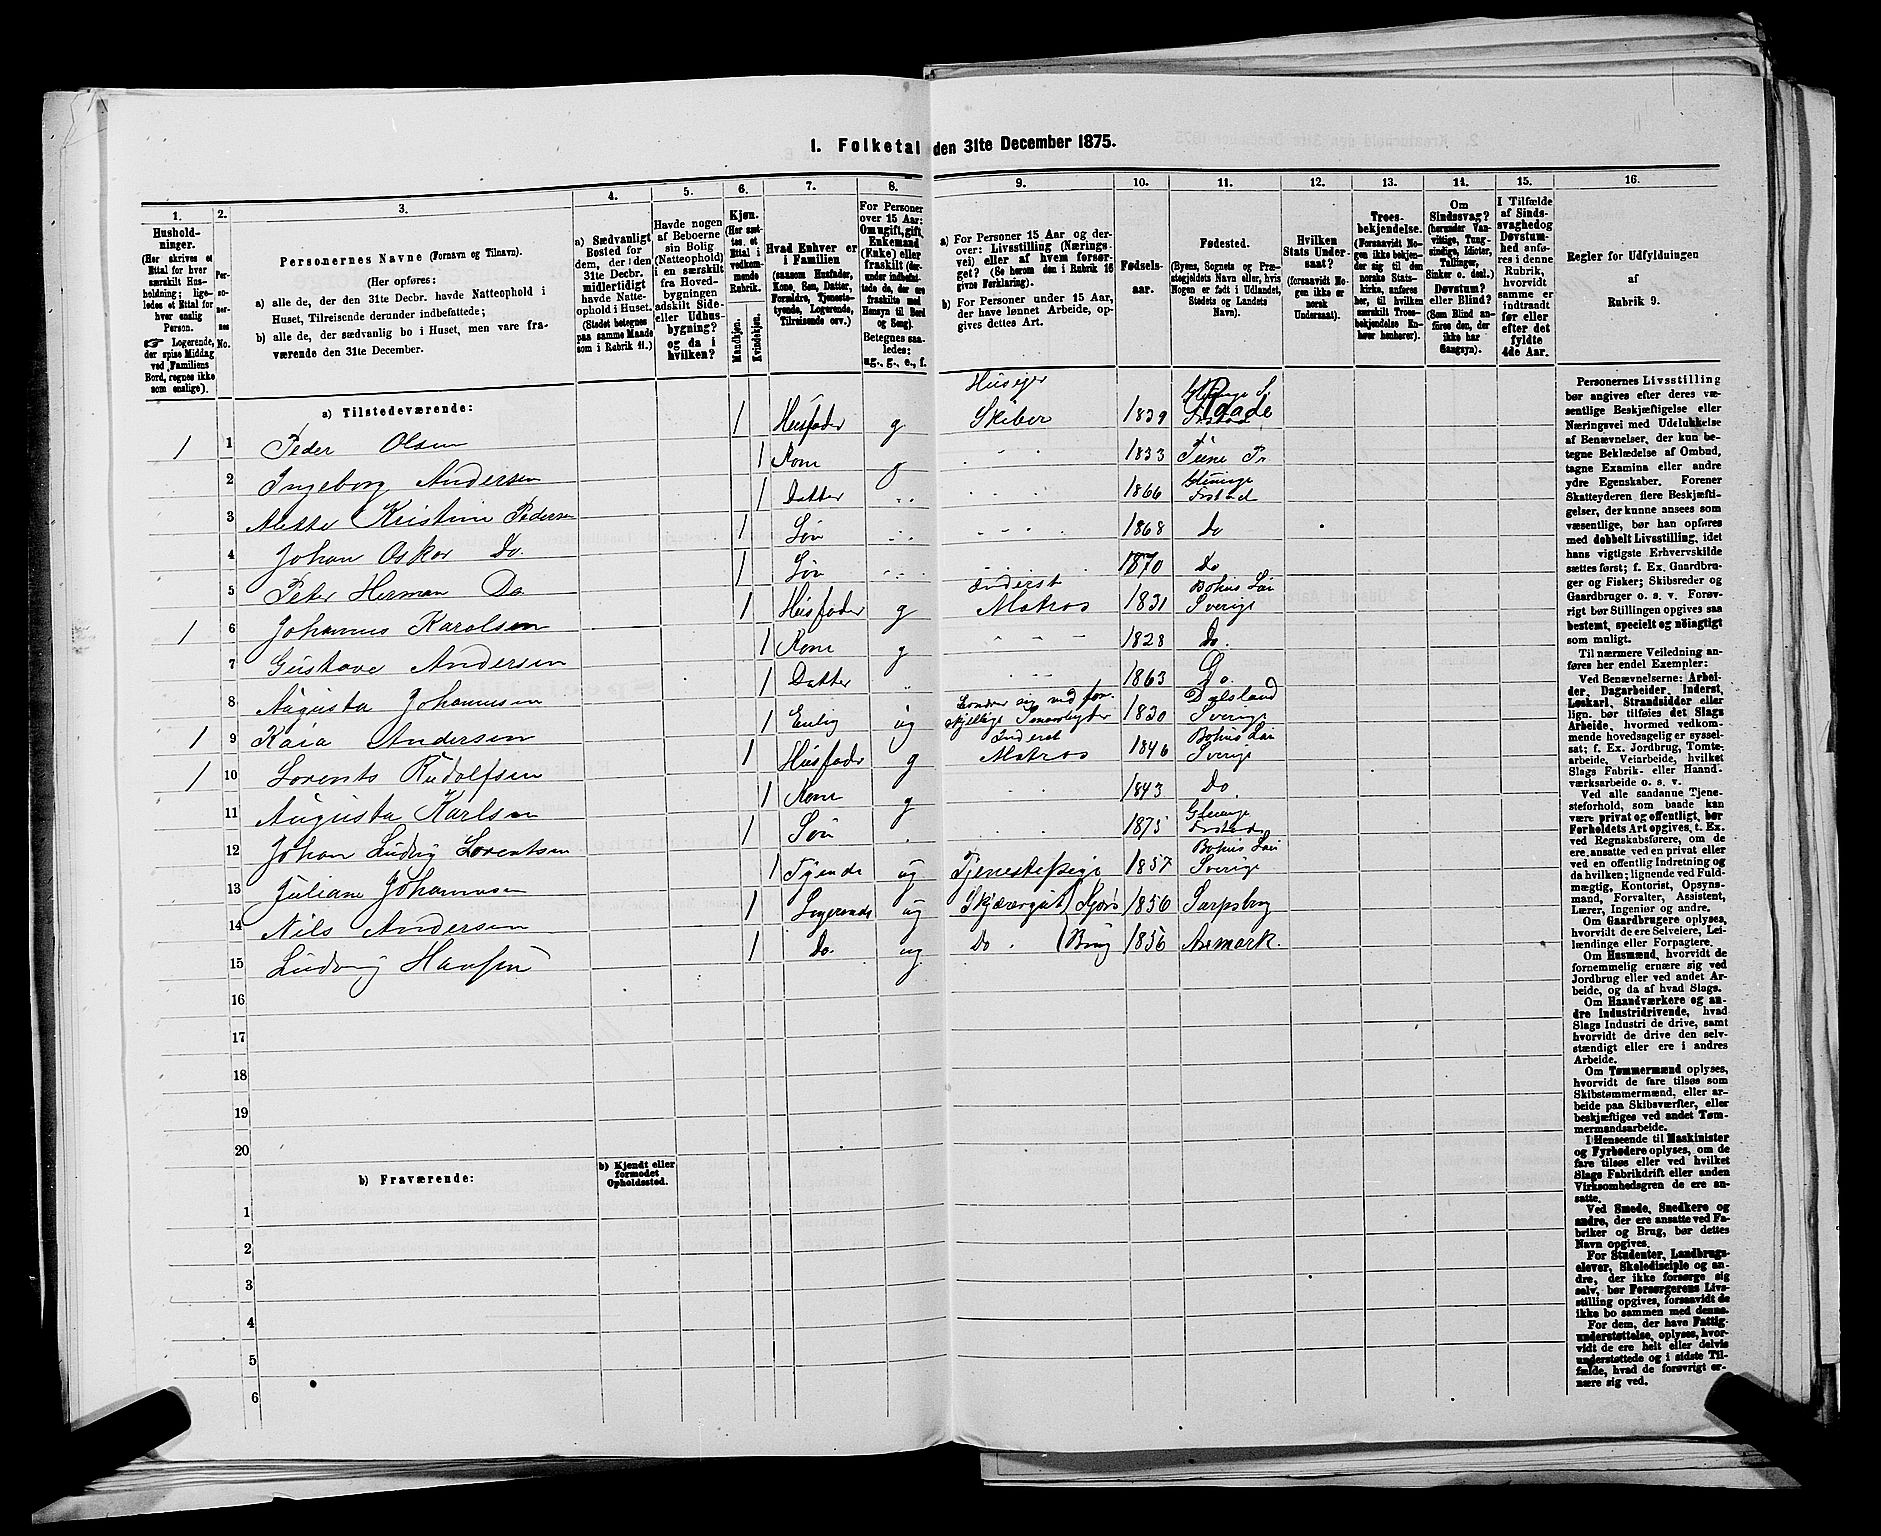 I. Folketal den 31te December 1875.
1. 2. 3. 4. 5. 6. 7. 8. 9. 10. 11. 12. 13. 14. 15. 16.
Hushold-
ninger.
(Her skrives et
Ettal for hver
særskilt Hus-
holdning; lige-
ledes et Ettal for
hver enslig
Person.
☞ Logerende,
der spise Middag
ved Familiens
Bord, regnes ikke
som enslige).
Per-
so-
ner-
nes
No.
Personernes Navne (Fornavn og Tilnavn).
(Her opføres:
a) alle de, der den 31te Decbr. havde Natteophold i
Huset, Tilreisende derunder indbefattede;
b) alle de, der sædvanlig bo i Huset, men vare fra-
værende den 31te December.
a) Sædvanligt
Bosted for
dem, der i den
31te Decbr.
midlertidigt
havde Natte-
ophold i Huset.
(Stedet betegnes
paa samme Maade
som i Rubrik 11.)
Havde nogen
af Beboerne
sin Bolig
(Natteophold)
i en særskilt
fra Hoved-
bygningen
adskilt Side-
eller Udhus-
bygning?
og da i
hvilken?
Kjøn.
(Her sæt-
tes et
Ettal i
vedkom-
mende
Rubrik.
Mandkjøn.
Kvindekjøn.
Hvad Enhver er
i Familien
(saasom Husfader,
Kone, Søn, Datter,
Forældre, Tjeneste-
tyende, Logerende,
Tilreisende osv.)
For Personer
over 15 Aar:
Om ugift, gift,
Enkemand
(Enke) eller
fraskilt (der-
under indbefat-
tede de, der ere
fraskilte med
Hensyn til Bord
og Seng).
Betegnes saa-
ledes:
ug., g., e., f.
a) For Personer 15 Aar og der-
over: Livsstilling (Nærings-
vei) eller af hvem forsør-
get? (Se herom den i Rubrik 16
givne Forklaring).
b) For Personer under 15 Aar,
der have lønnet Arbeide, op-
gives dettes Art.
Fødsels-
aar.
Fødested.
(Byens, Sognets og Præ-
stegjeldets Navn eller, hvis
Nogen er født i Udlandet,
Stedets og Landets
Navn).
Hvilken
Stats Under-
saat?
(forsaavidt No-
gen ikke er
norsk
Undersaat).
Troes-
bekjendelse.
(Forsaavidt No-
gen ikke bekjen-
der sig til den
norske Stats-
kirke, anføres
her, til hvilken
særskilt Troes-
bekjendelse En-
hver henhører).
Om
Sindssvag?
(herunder Van-
vittige, Tung-
sindige, Idioter,
Tullinger,
Sinker o. desl.)
Døvstum?
eller Blind?
(Som Blind an-
føres den, der
ikke har
Gangsyn).
I Tilfælde
af Sinds-
svaghed og
Døvstum-
hed anfø-
res i denne
Rubrik,
hvorvidt
samme er
indtraadt
før eller
efter det
fyldte
4de Aar.
Regler for Udfyldningen
af
Rubrik 9.
a) Tilstedeværende:
1 1 Peder Olsen 1 Husfader g Huseier Skiber 1839
2 Ingeborg Andersen 1 Kone g 1833 Tune Pr
3 Mette Kristine Pedersen 1 Datter 1866
4 Johan Oskar Do. 1 Søn 1868 Do
5 Peter Herman Do 1 Søn 1870 Do
1 6 Johannes Karolsen 1 Husfader g Inderst Matros 1831 Bohus Län Sverige
7 Gustave Andersen 1 Kone g 1828 Do.
8 Augusta Johannesen 1 Datter 1863 Do.
1 9 Kaia Andersen 1 Enlig ug 1830 Dalsland Sverige
1 10 Lorents Rudolfsen 1 Husfader g Inderst Matros 1846 Bohus Län Sverige
11 Augusta Karlsen 1 Kone g 1843 Do.
12 Johan Ludvig Lorentsen 1 Søn 1875
13 Juliane Johannesen 1 Tyende ug Tjenestepige 1857 Bohus Län Sverige
14 Nils Andersen 1 Logerende ug 1856 Sarpsborg
15 Ludvig Hansen 1 Do. ug Do. Brug 1856 Aremark.
16
17
18
19
20
b) Fraværende:
b) Kjendt eller
formodet
Opholdssted.
1
2
3
4
5
6
Personernes Livsstilling
bør angives efter deres væ-
sentlige Beskjæftigelse eller
Næringsvei med Udelukkelse
af Benævnelser, der kun be-
tegne Beklædelse af Ombud,
tagne Examina eller andre
ydre Egenskaber. Forener
Skatteyderen flere Beskjæfti-
gelser, der kunne ansees som
væsentlige, bør han opføres
med dobbelt Livsstilling, idet
hans vigtigste Erhvervskilde
sættes først; f. Ex. Gaardbru-
ger og Fisker; Skibsreder og
Gaardbruger o. s. v. Forøv-
rigt bør Stillingen opgives saa
bestemt, specielt og nøiagtigt
som muligt.
Til nærmere Veiledning an-
føres her endel Exempler:
Ved Benævnelserne: Arbei-
der, Dagarbeider, Inderst,
Løskarl, Strandsidder eller
lign. bør tilføies det Slags
Arbeide, hvormed vedkom-
mende hovedsagelig er syssel-
sat; f. Ex. Jordbrug, Tomte-
arbeide, Veiarbeide, hvilket
Slags Fabrik- eller Haand-
værksarbeide o. s. v.
Ved alle saadanne Tjene-
steforhold, som baade kan
være privat og offentligt, bør
Forholdets Art opgives, t. Ex.
ved Regnskabsførere, om de
ere ansatte ved en privat eller
ved en offentlig Indretning og
da hvilken; lignende ved Fuld-
mægtig, Kontorist, Opsyns-
mand, Forvalter, Assistent,
Lærer, Ingeniør og andre.
Om Gaardbrugere oplyses,
hvorvidt de ere Selveiere, Lei-
lændinge eller Forpagtere.
Om Husmænd, hvorvidt de
fornemmelig ernære sig ved
Jordbrug eller ved andet Ar-
beide, og da af hvad Slags.
Om Haandværkere og an-
dre Industridrivende, hvad
Slags Industri de drive, samt
hvorvidt de drive den selv-
stændigt eller ere i andres
Arbeide.
Om Tømmermænd oplyses,
hvorvidt de fare tilsøs som
Skibstømmermænd, eller ar-
beide paa Skibsværfter, eller
beskjæftiges ved andet Tøm-
mermandsarbeide.
I Henseende til Maskinister
og Fyrbødere oplyses, om de
fare tilsøs eller ved hvilket
Slags Fabrikdrift eller anden
Virksomhedsgren de ere an-
satte.
Ved Smede, Snedkere og
andre, der ere ansatte ved Fa-
briker og Brug, bør dettes
Navn opgives.
For Studenter, Landbrugs-
elever, Skoledisciple og an-
dre, der ikke forsørge sig
selv, bør Forsørgerens Livs-
stilling opgives, forsaavidt de
ikke bo sammen med denne.
For dem, der have Fattig-
understøttelse, oplyses, hvor-
vidt de ere helt eller delvis
understøttede og i sidste Til-
fælde, hvad de forøvrigt er-
nære sig ved.